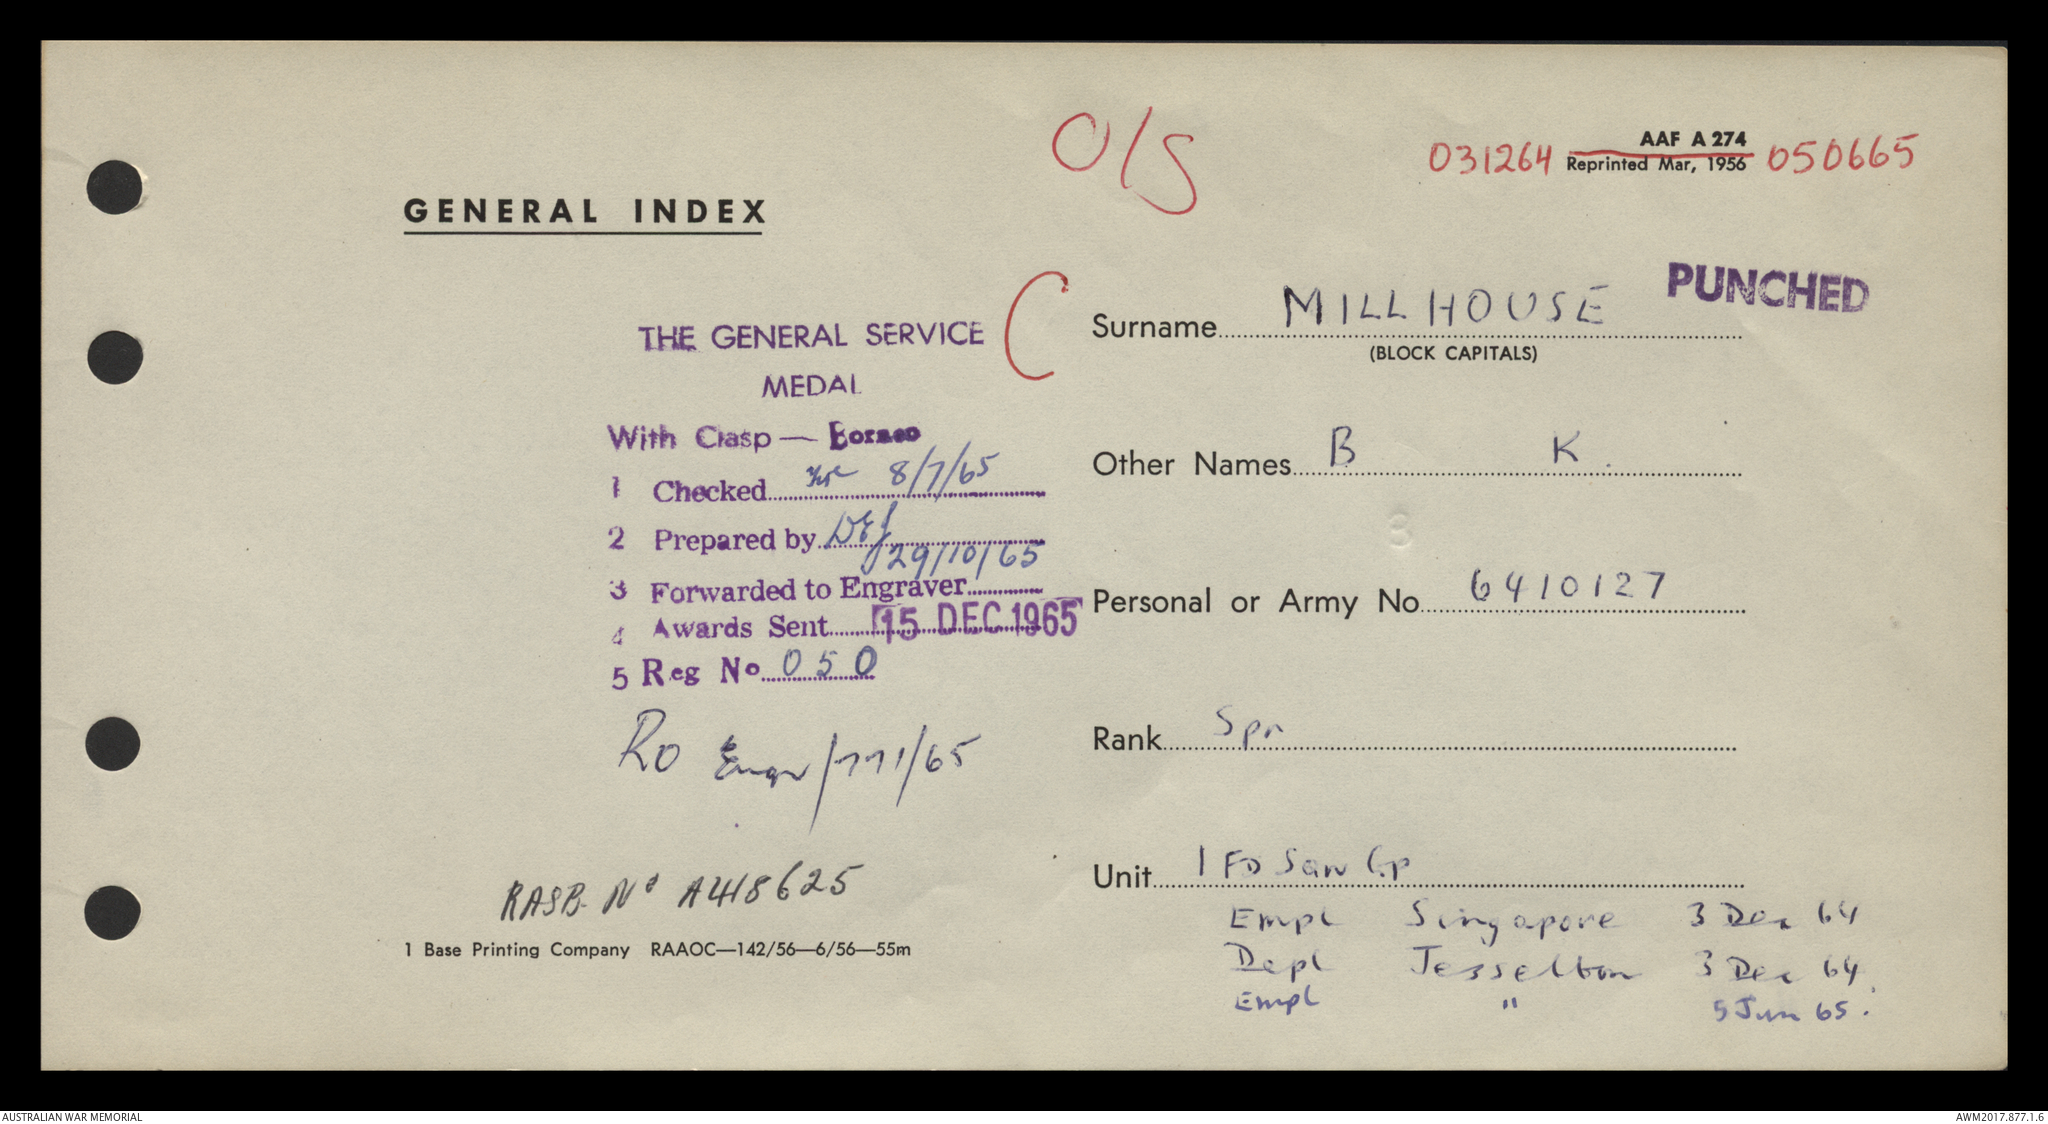 O/S
AAF A 274
031264 Reprinted Mar, 1956 050665
GENERAL INDEX
PUNCHED
THE GENERAL SERVICE
MEDAL
With Clasp — Borneo
1 Checked 8/7/65
2 Prepared by
29/10/65
3 Forwarded to Engraver
4 Awards Sent 15 DEC 1965
5 Reg No 050
RO Engr/771/65
RASB No A418625
1 Base Printing Company RAAOC—142/56—6/56—55m
C
Surname MILLHOUSE
(BLOCK CAPITALS)
Other Names B K.
3
Personal or Army No 6410127
Rank Spr
Unit 1 FD Sqn Gp
Empl Singapore 3 Dec 64
Depl Jesselton 3 Dec 64
Empl " 5 Jun 65.
AUSTRALIAN WAR MEMORIAL
AWM2017.877.1.6